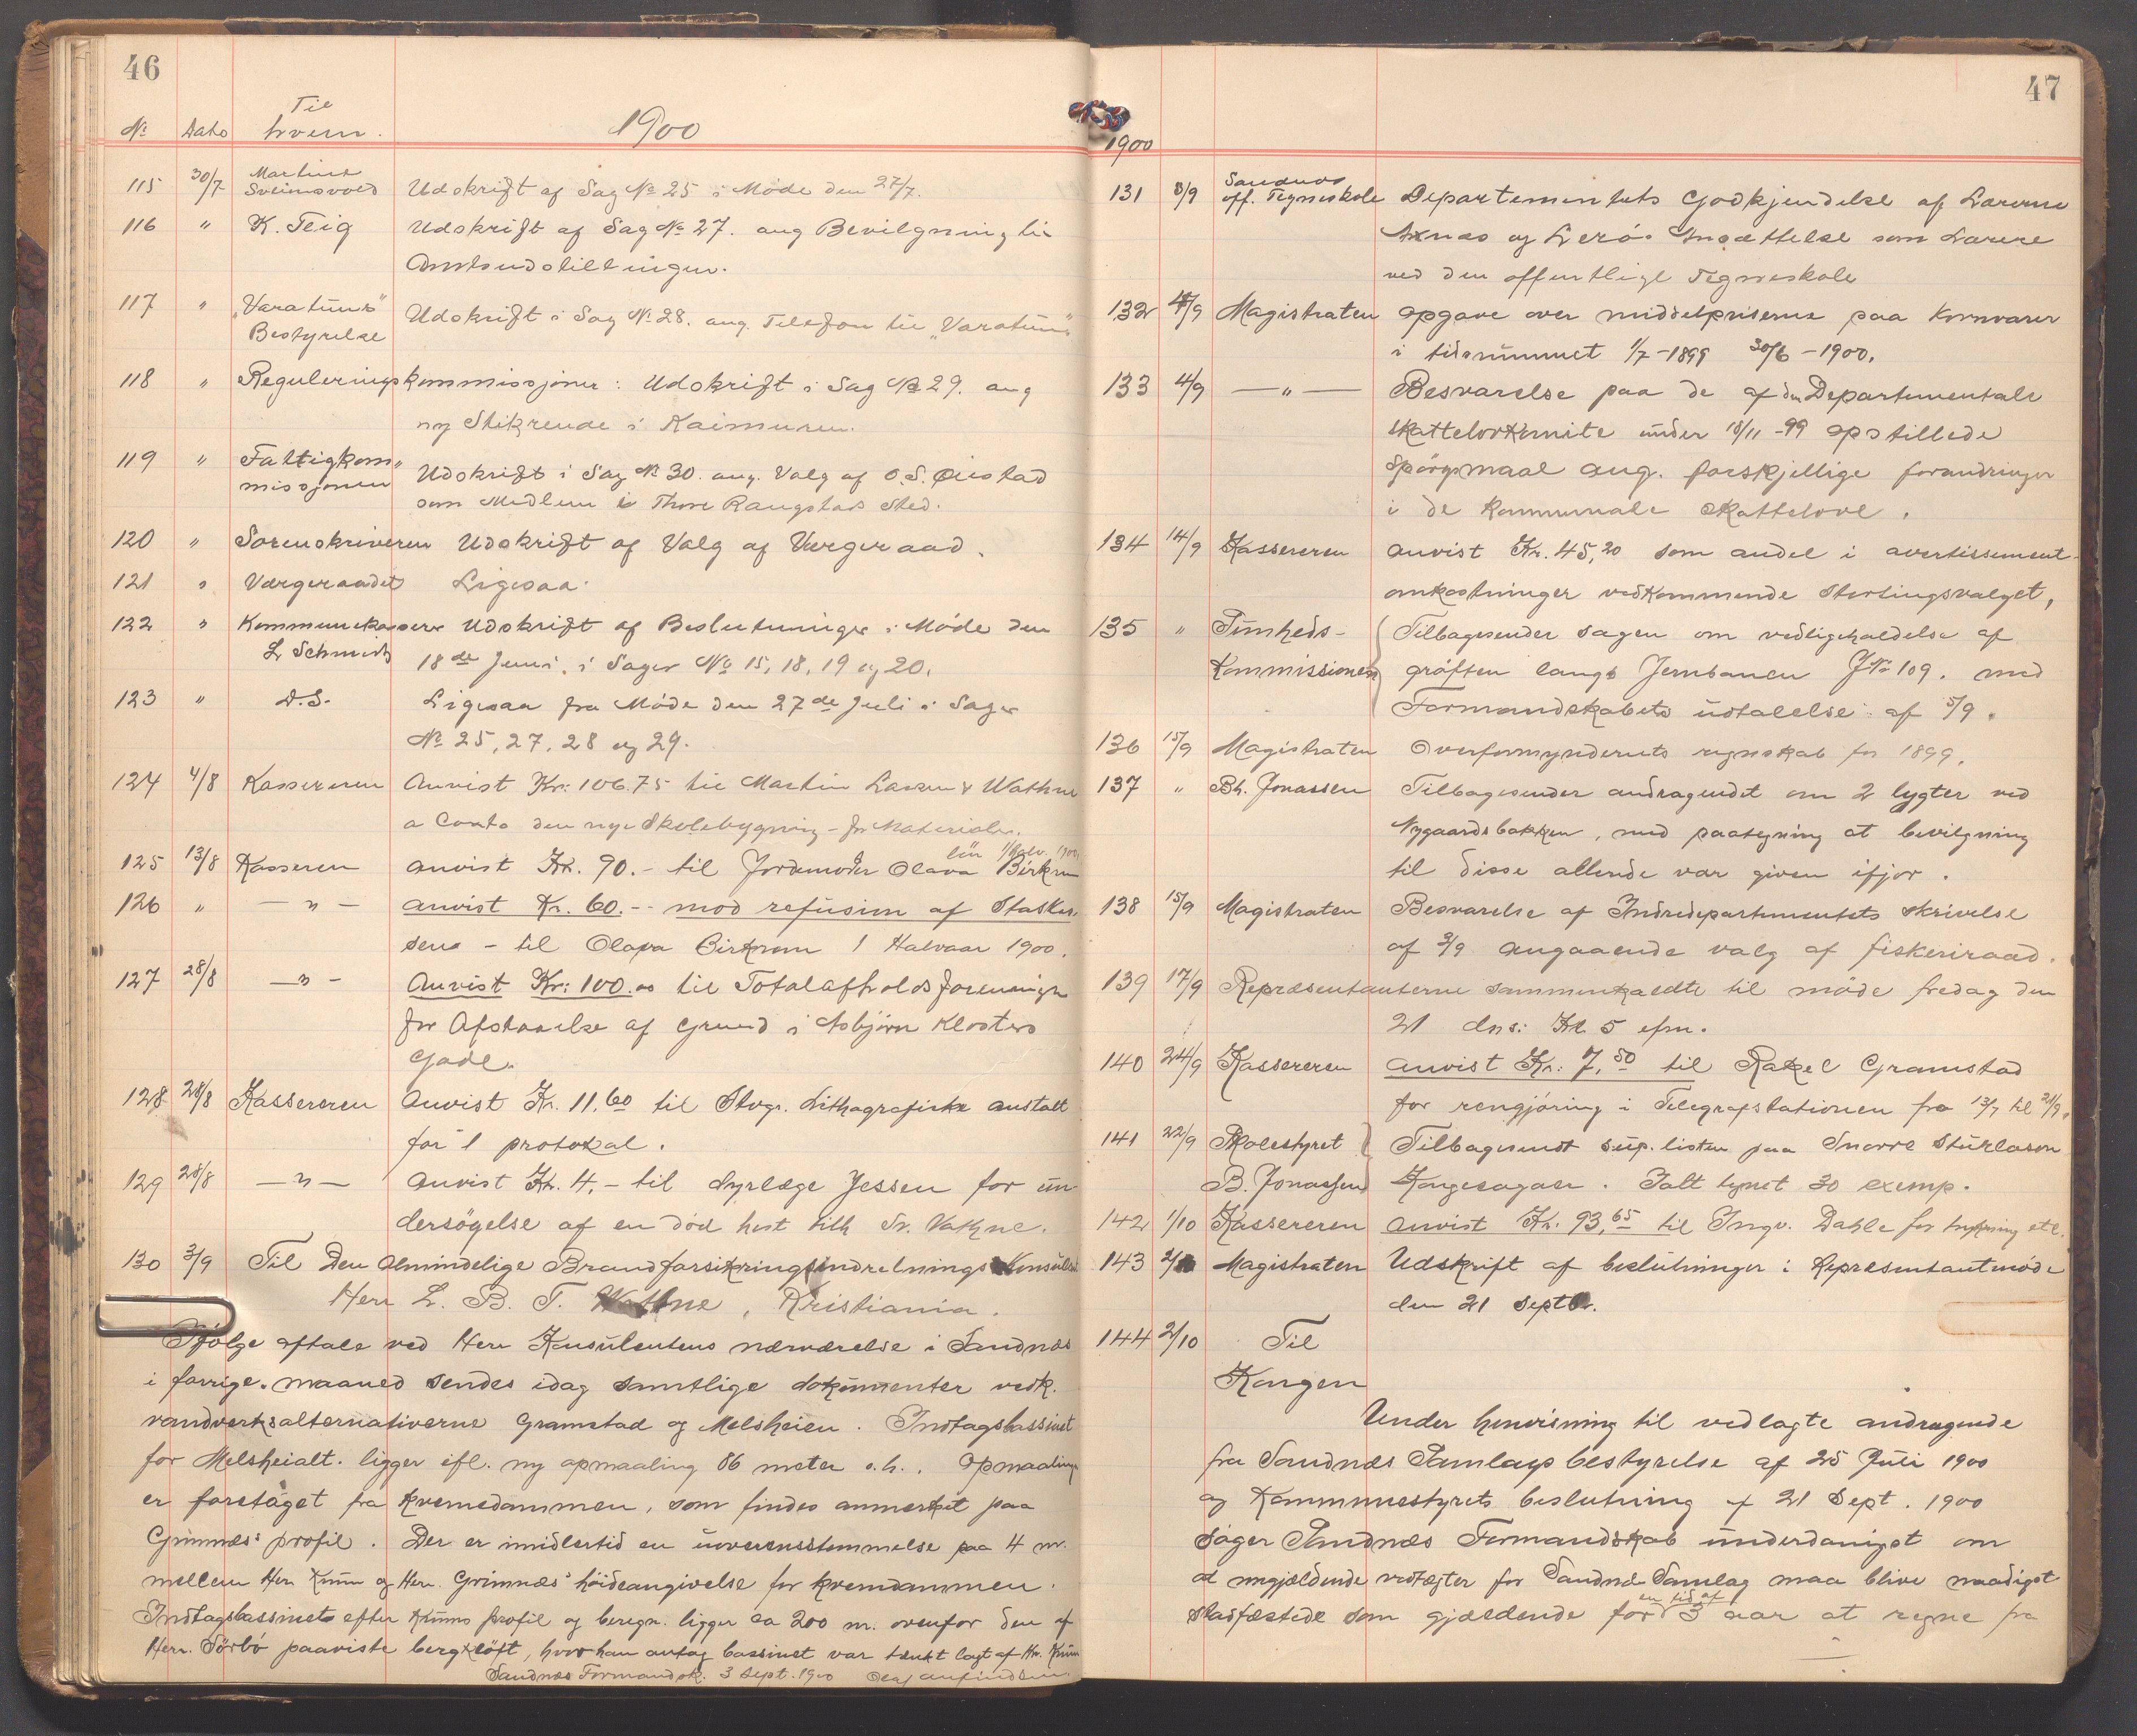 46
Til
No Dato hvem. 1900
115 30/7 Martines Sveinsvold Udskrift af Sag No 25 i Møde den 27/7.
116 " K. Teig Udskrift af Sag No 27. ang Bevilgning til
Amtsudstillingen.
117 " "Varatuns" Bestyrelse Udskrift i Sag No 28. ang. Telefon til "Varatun"
118 " Reguleringskommissjonen: Udskrift i Sag No 29. ang
ny Stikrende i Kaimuren.
119 " Fattigkommissjonen Udskrift i Sag No 30. ang. Valg af O. S. Øiestad
som Medlem i Thore Raugstads Sted.
120 " Sorenskriveren Udskrift af Valg af Værgeraad.
121 " Værgeraadet Ligesaa.
122 " Kommunekasserer Udskrift af Beslutninger i Møde den
L Schmidt 18de Juni. i Sager No 15, 18, 19 og 20.
123 " D.S. Ligesaa fra Møde den 27de Juli i Sager
No 25, 27, 28 og 29.
124 4/8 Kassereren Anvist Kr: 106.75 til Martin Larsen & Wathne
a Conto den nye Skolebygning - for Materialer.
løn 1/halv. 1900.
125 13/8 Kasseren anvist Kr. 90.- til Jordemoder Olava Birkrem
126 " - " - anvist Kr. 60.-- mod refusion af Statskas.
sens - til Olava Birkrem 1 Halvaar 1900.
127 28/8 - " - Anvist Kr: 100.00 til Totalafholdsforeningen
for Afstaaelse af Grund i Asbjørn Klosters
Gade.
128 28/8 Kassereren Anvist Kr. 11.60 til Stvgr. Lithografiske anstalt
for 1 protokol.
129 28/8 - " - Anvist Kr. 4.- til dyrlæge Jessen for un-
dersøgelse af en død hest tilh Sv. Vathne.
130 3/9 Til Den Almindelige Brandforsikringsindretnings Konsulent
Herr L. B. T. Wathne, Kristiania.
Ifølge aftale ved Herr Konsulentens nærværelse i Sandnæs
i forrige maaned sendes idag samtlige dokumenter vedk.
vandverksalternativerne Gramstad og Melsheien. Indtagsbassinet
for Melsheialt. ligger ifl. ny opmaaling 86 meter o.h.. Opmaalingen
er foretaget fra kvernedammen, som findes anmerket paa
Grimnæs' profil. Der er imidlertid en uoverensstemmelse paa 4 m.
mellem Herr Krum og Herr. Grimnæs' høideangivelse for kverndammen.
Indtagsbassinets efter Krums profil og beregn. ligger ca 200 m. ovenfor den af
Herr. Sørbø paaviste bergkløft, hvor han antog bassinet var tænkt lagt af Hr. Krum
Sandnæs Formandsk. 3 Sept. 1900 Olaf Aanfindsen.
47
1900
131 3/9 Sandnes off. Tegneskole Departementets Godkjendelse af Lærerne
Axnæs og Lerøs Ansættelse som Lærere
ved den offentlige Tegneskole
132 4/9 Magistraten opgave over middelpriserne paa Kornvarer
i tidsrummet 1/7-1899 30/6-1900.
133 4/9 - " - Besvarelse paa de af den Departementale
skattelovkomite under 18/11-99 opstillede
Spørgsmaal ang. forskjellige forandringer
i de kommunale Skattelove.
134 14/9 Kassereren anvist Kr. 45,20 som andel i avertissement-
omkostninger vedkommende Stortingsvalget,
135 " Sunheds- Tilbagesender sagen om vedligeholdelse af
Kommissionen grøften langs Jernbanen J No 109. med
Formandskabets udtalelse af 5/9.
136 15/9 Magistraten Overformynderiets regnskab for 1899.
137 " Bh. Jonassen Tilbagesender andragendet om 2 lygter ved
Nygaardsbakken, med paategning at bevilgning
til disse allerede var given ifjor.
138 15/9 Magistraten Besvarelse af Indredepartementets skrivelse
af 3/9 angaaende valg af fiskeriraad.
139 17/9 Repræsentanterne sammenkaldte til møde fredag den
21 dns: Kl 5 efm.
140 24/9 Kassereren anvist Kr: 7,50 til Rakel Gramstad
for rengjøring i Telegrafstationen fra 13/7 til 21/9.
141 22/9 Skolestyret Tilbagesendt sup. listen paa Snorre Sturlason
B. Jonassen Kongesagaer. Ialt tegnet 30 exemp.
142 1/10 Kassereren anvist Kr. 93,65 til Ingv. Dahle for trykning etc.
143 2/10 Magistraten Udskrift af beslutninger i Repræsentantmøde
den 21 Septbr.
144 2/10 Til
Kongen
Under henvisning til vedlagte andragende
fra Sandnæs Samlags bestyrelse af 25 Juli 1900
og Kommunestyrets beslutning af 21 Sept. 1900
søger Sandnæs Formandskab underdanigst om
at omgjældende vedtægter for Sandnæs Samlag maa blive naadigst
en tid af
stadfæstede som gjældende for 3 aar at regne fra